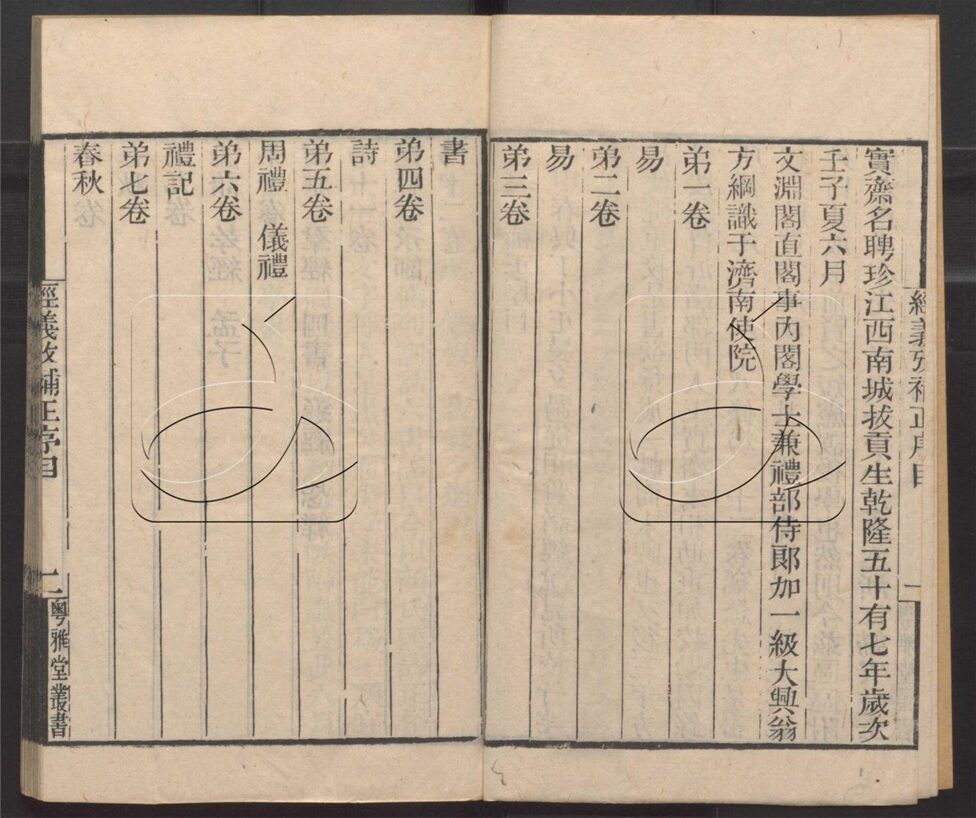 經義攷補正序目
一
實齋名聘珍江西南城拔貢生乾隆五十有七年歲次
壬子夏六月
文淵閣直閣事內閣學士兼禮部侍郎加一級大興翁
方綱識于濟南使院
弟一卷
易
弟二卷
易
弟三卷
書
弟四卷
詩
弟五卷
周禮 儀禮
弟六卷
禮記
弟七卷
春秋
經義攷補正序目
二
粵雅堂叢書